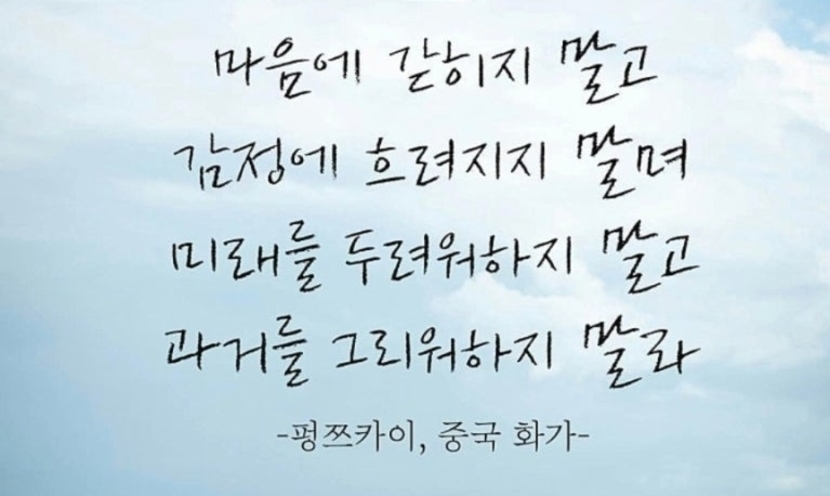 마음에 갇히지 말고
감정에 흐려지지 말며
미래를 두려워하지 말고
과거를 그리워하지 말라
-펑쯔카이, 중국 화가-